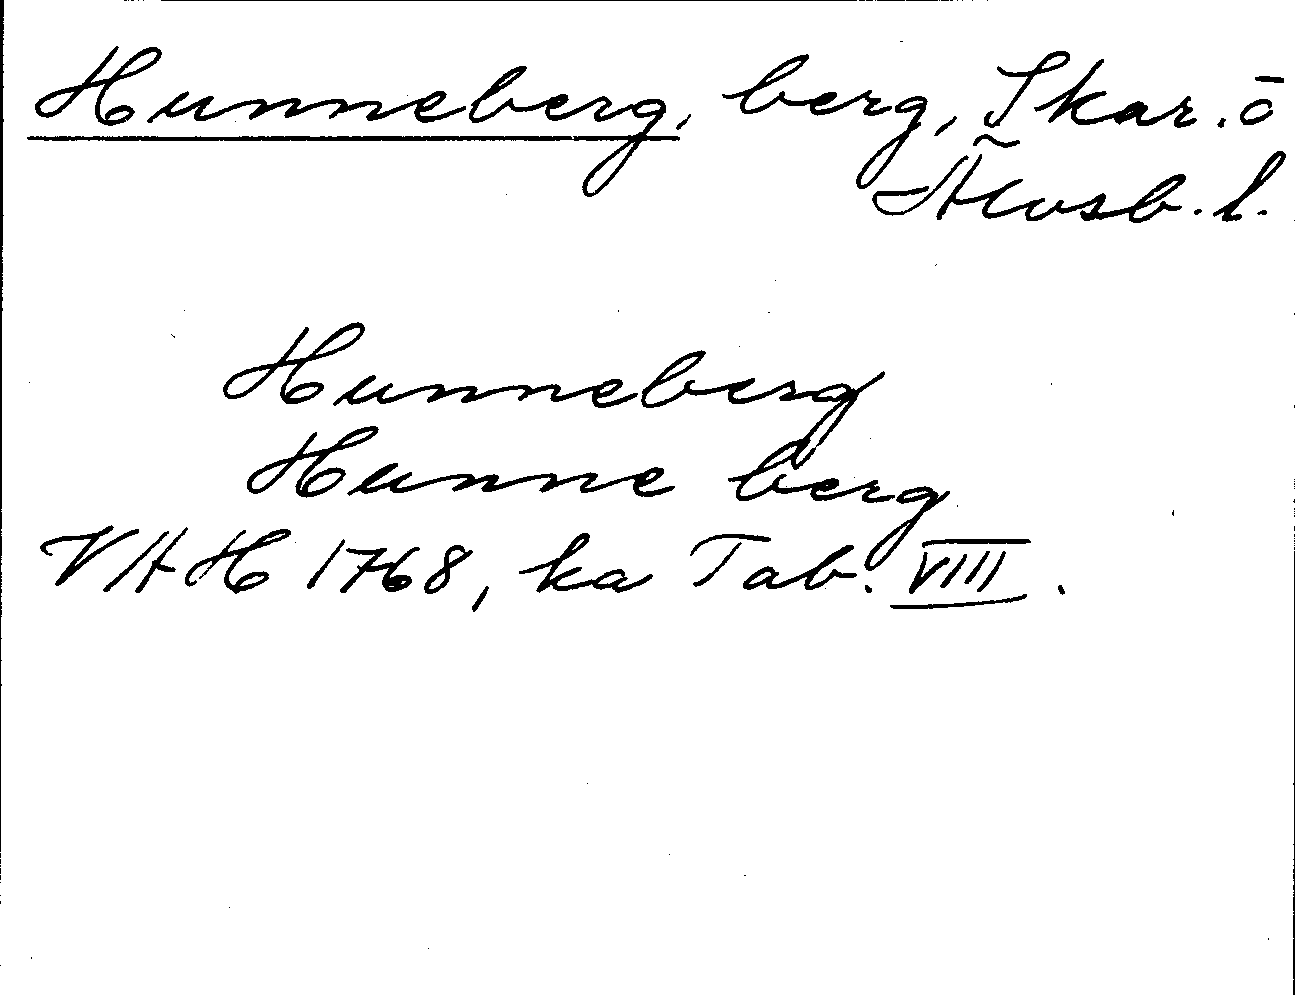 Hunneberg, berg, Skar. o
Älvsb. l.
Hunneberg
Hunne berg
VAH 1768, ka Tab. VIII.